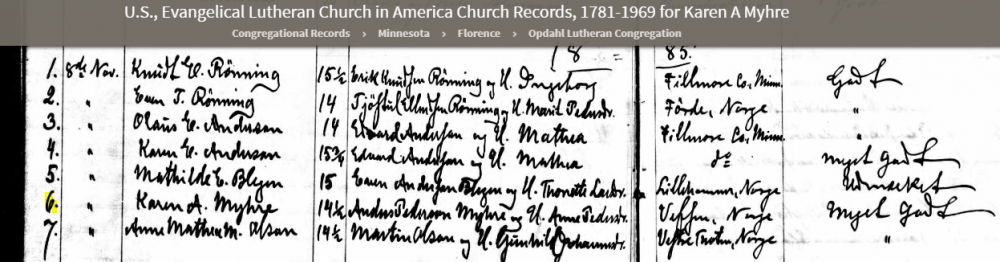 U.S., Evangelical Lutheran Church in America Church Records, 1781-1969 for Karen A Myhre
Congregational Records > Minnesota > Florence > Opdahl Lutheran Congregation
18 = 85.
1. 8de Nov. Knudt E. Rönning 15½ Erik Knudsen Rönning og H. Ingeborg Fillmore Co, Minn. Godt
2. " Even T. Rönning 14 Rönning og H. Marit Pedersdr. Förde, Norge "
3. " Olaus E. Anderson 14 Edvard Anderson og H. Mathea Fillmore Co, Minn. "
4. " Karen E. Anderson 15¾ Edvard Anderson og H. Mathea do Myet Godt
5. " Mathilde E. Blyen 15 Even Andersen Blyen og H. Thonette Larsdr. Lillehammer, Norge Udmærket
6. " Karen A. Myhre 14½ Anders Pederson Myhre og H. Anne Pedersdr. Veffsen, Norge Myet Godt
7. " Anne Mathea M. Olson 14½ Martin Olson og H. Gunhild Johannesdr. Vestre Thoten, Norge "